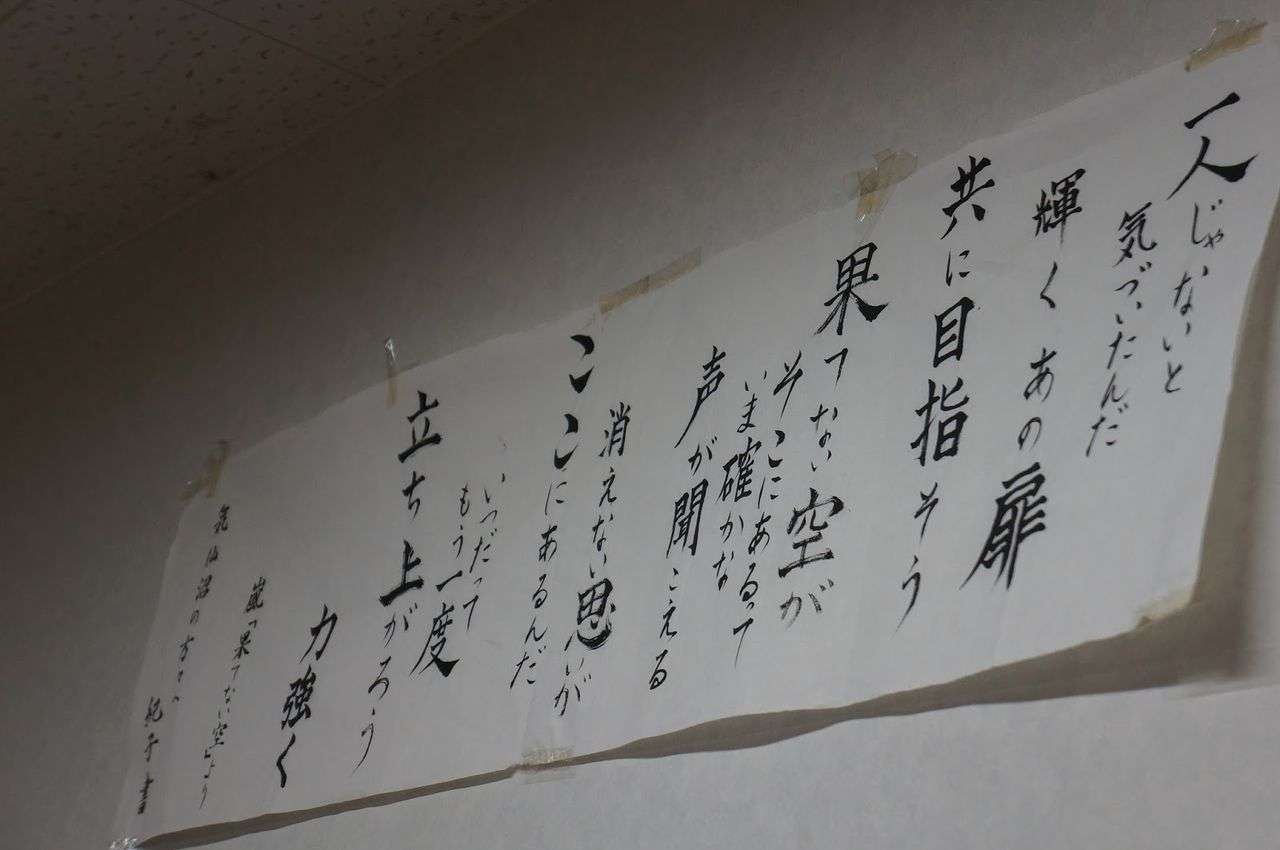 一人じゃないと
気づいたんだ
輝くあの扉
共に目指そう
果てない空が
そこにあるって
いま確かな
声が聞こえる
消えない思いが
ここにあるんだ
いつだって
もう一度
立ち上がろう
力強く
嵐「果てない空」より
気仙沼の方々へ
紀子書